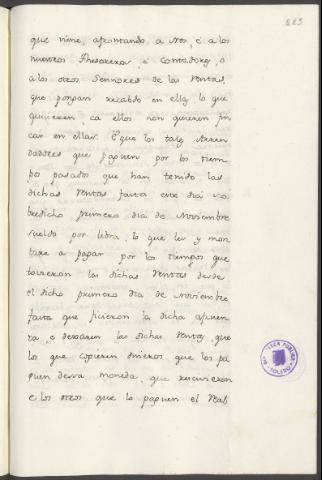 223
que viene, apontando a Nos, e a los
nuestros Thesoreros, e Contadores, o
a los otros Sennores de las Rentas,
que pongan recabdo en ellas, lo que
quisieren, ca ellos non quieren fin
car en ellas. E que los tales Arren
dadores que paguen por los tiem
pos pasados que han tenido las
dichas Rentas fasta este dia so
bredicho primero dia de Noviembre
sueldo por libra, lo que les y mon
tare a pagar por los tiempos que
tovieron las dichas Rentas desde
el dicho primero dia de Noviembre
fasta que ficieron la dicha apuen
ta, e dexaren las dichas Rentas, que
los que cogieren dineros que los pa
guen desta moneda, que rescivieron
e los otros que lo paguen el Real